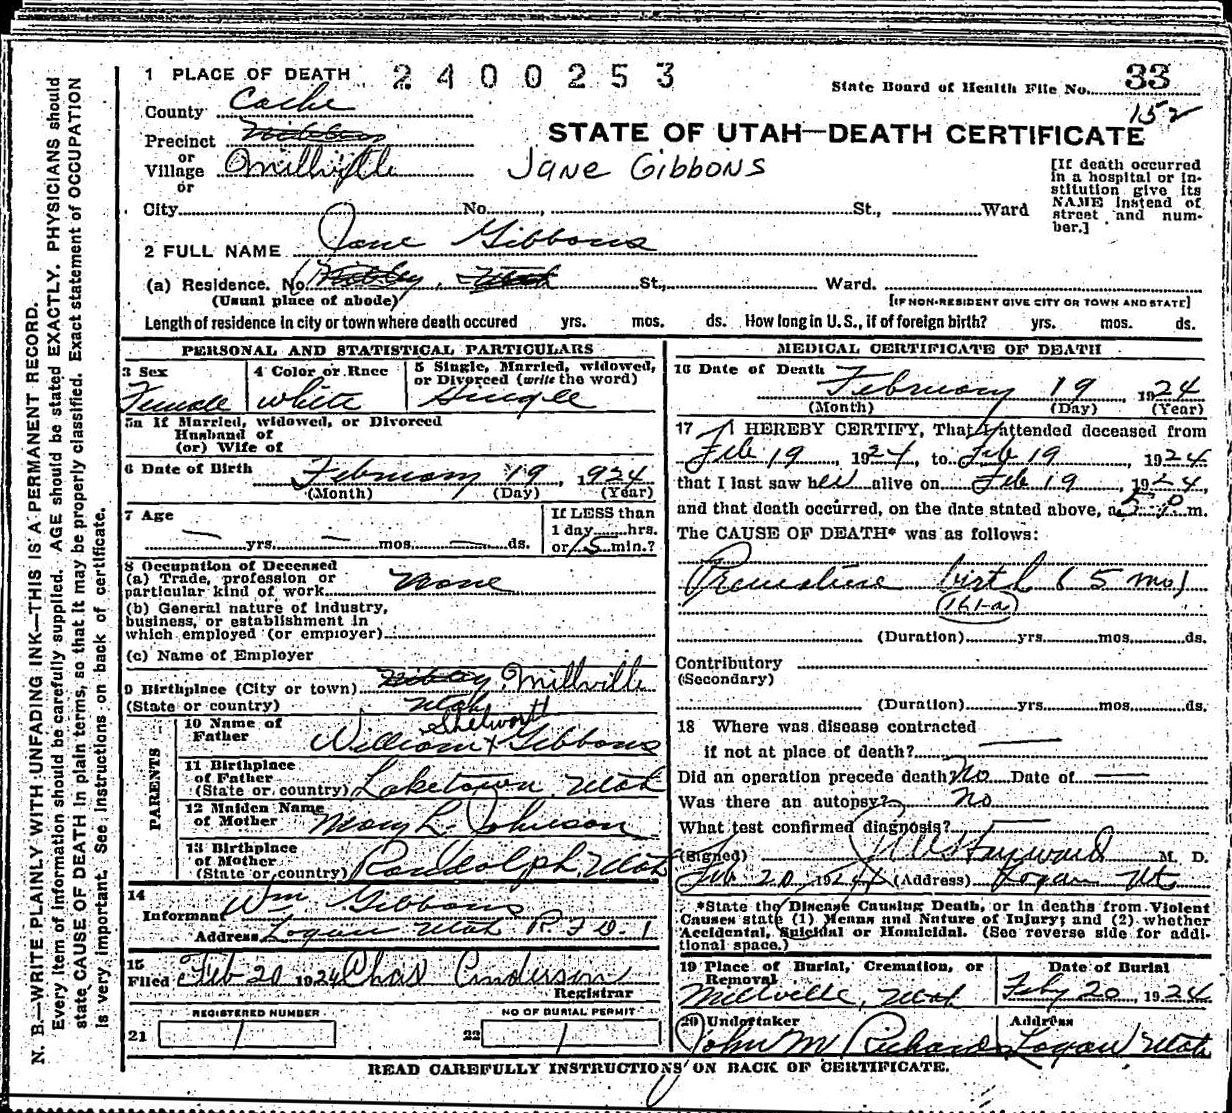 1 PLACE OF DEATH 2400253
State Board of Health File No. 33
152
County Cache
Precinct
or
Village Millville
or
STATE OF UTAH—DEATH CERTIFICATE
Jane Gibbons
[If death occurred in a hospital or institution give its NAME instead of street and number.]
City No. , St., Ward
2 FULL NAME Jane Gibbons
(a) Residence. No. , Utah St., Ward.
(Usual place of abode)
[IF NON-RESIDENT GIVE CITY OR TOWN AND STATE]
Length of residence in city or town where death occured yrs. mos. ds. How long in U. S., if of foreign birth? yrs. mos. ds.
PERSONAL AND STATISTICAL PARTICULARS
3 Sex Female
4 Color or Race white
5 Single, Married, widowed, or Divorced (write the word) Single
5a If Married, widowed, or Divorced
Husband of
(or) Wife of
6 Date of Birth February 19, 1924
(Month) (Day) (Year)
7 Age — yrs. — mos. — ds.
If LESS than
1 day hrs.
or 15 min.?
8 Occupation of Deceased
(a) Trade, profession or
particular kind of work None
(b) General nature of industry,
business, or establishment in
which employed (or employer)
(c) Name of Employer
9 Birthplace (City or town) Millville
(State or country) Utah
PARENTS
10 Name of Father William Gibbons
11 Birthplace
of Father
(State or country) Laketown, Utah
12 Maiden Name
of Mother Mary L. Johnson
13 Birthplace
of Mother
(State or country) Randolph, Utah
14
Informant Wm. Gibbons
Address Logan Utah R.F.D. 1
15
Filed Feb 20 1924 Chas Anderson
Registrar
REGISTERED NUMBER
21 1
NO OF BURIAL PERMIT
22 1
MEDICAL CERTIFICATE OF DEATH
16 Date of Death
February 19, 1924
(Month) (Day) (Year)
17 I HEREBY CERTIFY, That I attended deceased from
Feb 19, 1924, to Feb 19, 1924
that I last saw her alive on Feb 19, 1924,
and that death occurred, on the date stated above, at 5 P m.
The CAUSE OF DEATH* was as follows:
Premature birth (5 mo)
161-a
(Duration) yrs. mos. ds.
Contributory
(Secondary)
(Duration) yrs. mos. ds.
18 Where was disease contracted
if not at place of death? —
Did an operation precede death? No Date of —
Was there an autopsy? No
What test confirmed diagnosis? —
(Signed) Hayward M. D.
Feb 20, 1924 (Address) Logan Ut.
*State the Disease Causing Death, or in deaths from Violent
Causes state (1) Means and Nature of Injury; and (2) whether
Accidental, Suicidal or Homicidal. (See reverse side for addi-
tional space.)
19 Place of Burial, Cremation, or
Removal
Millville, Utah
Date of Burial
Feby 20, 1924
20 Undertaker
John M Richards
Address
Logan Utah
READ CAREFULLY INSTRUCTIONS ON BACK OF CERTIFICATE.
N. B.—WRITE PLAINLY WITH UNFADING INK—THIS IS A PERMANENT RECORD.
Every item of information should be carefully supplied. AGE should be stated EXACTLY. PHYSICIANS should
state CAUSE OF DEATH in plain terms, so that it may be properly classified. Exact statement of OCCUPATION
is very important. See instructions on back of certificate.